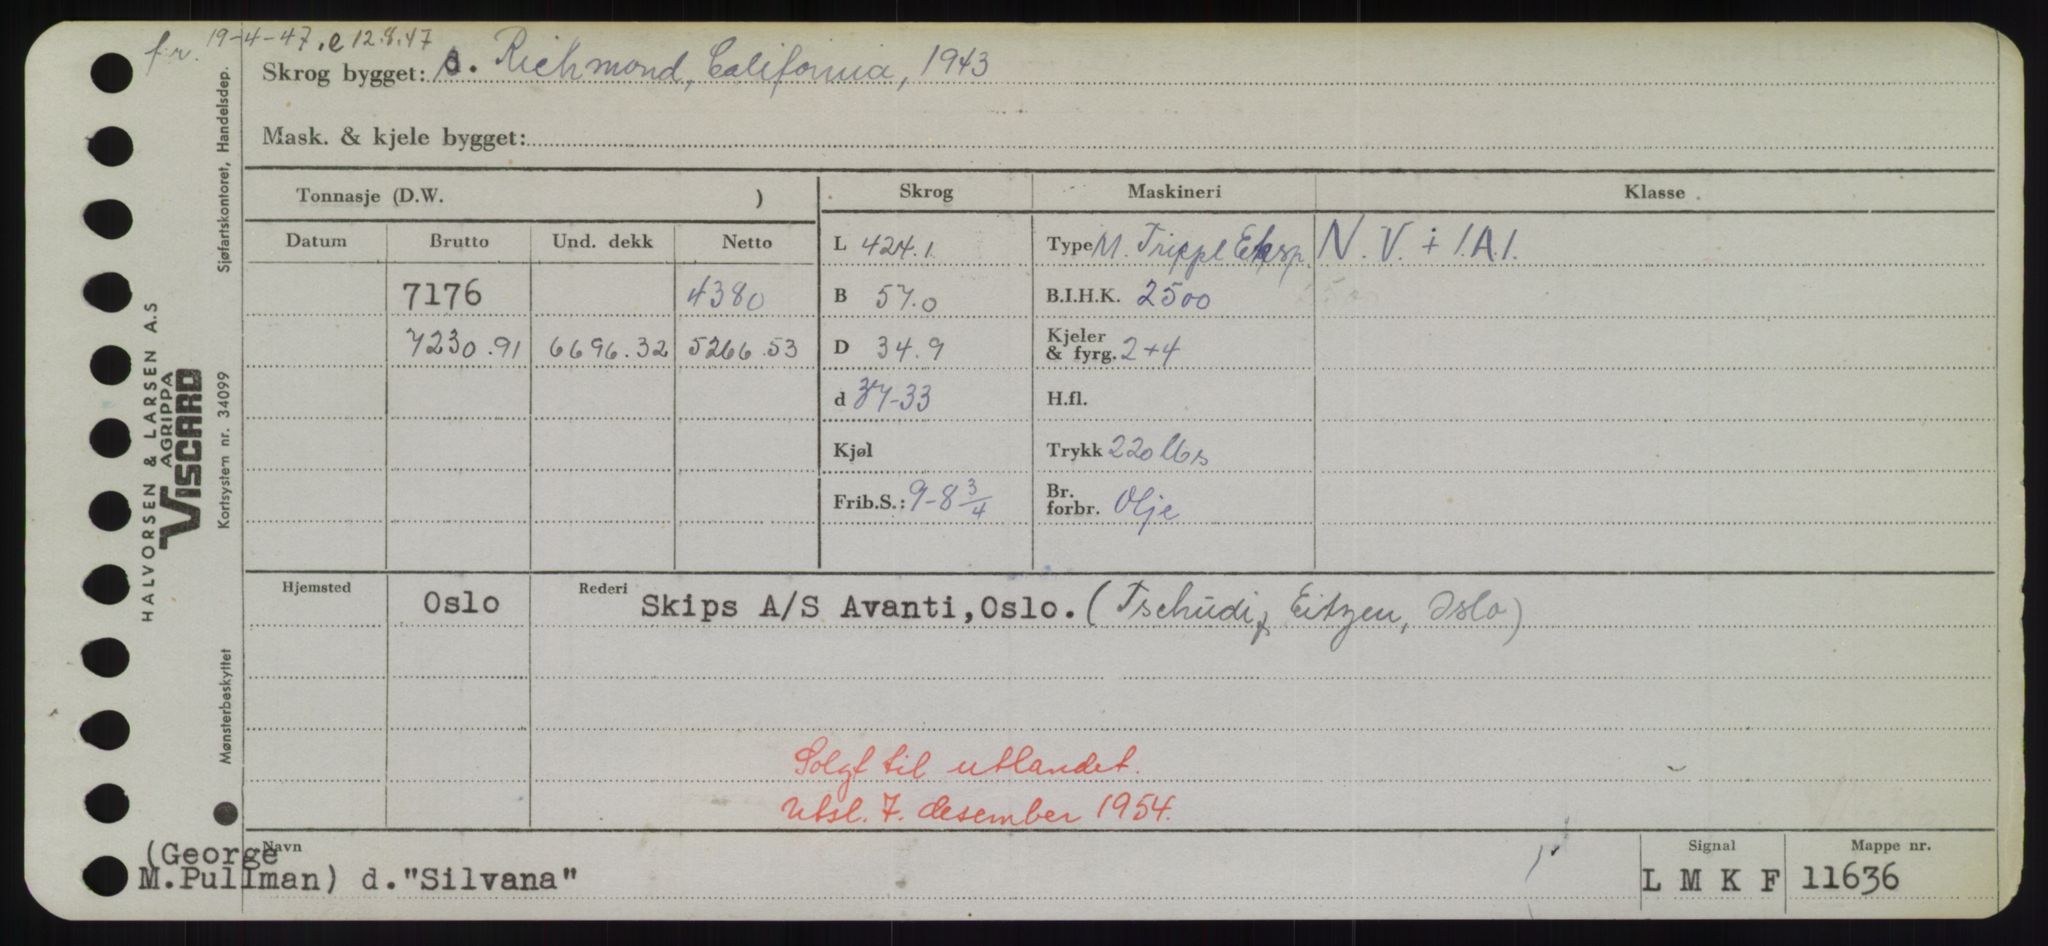 fr. 19-4-47. e 12.8.47
Skrog bygget: d. Richmond, California, 1943
Mask. & kjele bygget:
Tonnasje (D.W. )
Skrog
Maskineri
Klasse
Datum Brutto Und. dekk Netto
L 424.1
Type M. Trippl Eksp.
N.V. + 1.A.1.
7176 4380
B 57.0
B.I.H.K. 2500
7230.91 6696.32 5266.53
D 34.9
Kjeler
& fyrg. 2+4
d 37-33
H.fl.
Kjøl
Trykk 220 lbs
Frib.S.: 9-8 3/4
Br.
forbr. Olje
Hjemsted Oslo Rederi Skips A/S Avanti, Oslo. (Tschudi & Eitzen, Oslo)
Solgt til utlandet.
Utsl. 7. desember 1954.
Navn
(George
M.Pullman) d."Silvana"
Signal
L M K F
Mappe nr.
11636
HALVORSEN & LARSEN A.S
AGRIPPA
VISCARD
Sjøfartskontoret, Handelsdep.
Kortsystem nr. 34099
Mønsterbeskyttet